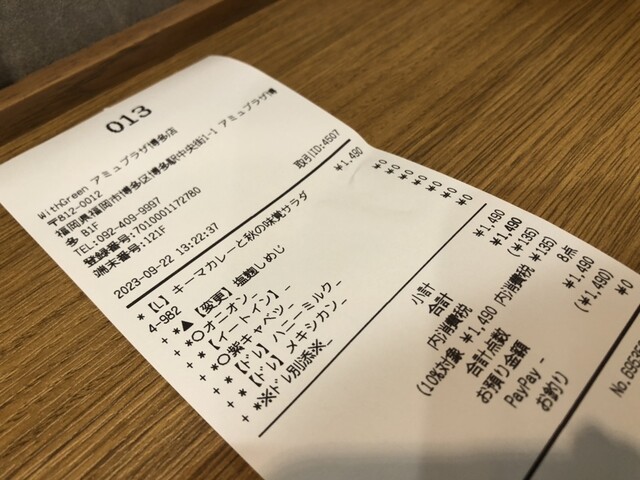 013
WithGreen アミュプラザ博多店
〒812-0012
福岡県福岡市博多区博多駅中央街1-1 アミュプラザ博
多 B1F
TEL:092-409-9997
登録番号:7010001172780
端末番号:121F
2023-09-22 13:22:37 取引ID:4507
*【L】キーマカレーと秋の味覚サラダ ¥1,490
4-982
+ *▲【変更】塩麹しめじ ¥0
+ *○オニオン_ ¥0
+ *【イートイン】_ ¥0
+ *○紫キャベツ_ ¥0
+ *【ドレ】ハニーミルク_ ¥0
+ *【ドレ】メキシカン_ ¥0
+ *※ドレ別添※_ ¥0
小計 ¥1,490
合計 ¥1,490
内消費税 (¥135)
(10%対象 ¥1,490 内消費税 ¥135)
合計点数 8点
お預り金額 ¥1,490
PayPay - (¥1,490)
お釣り ¥0